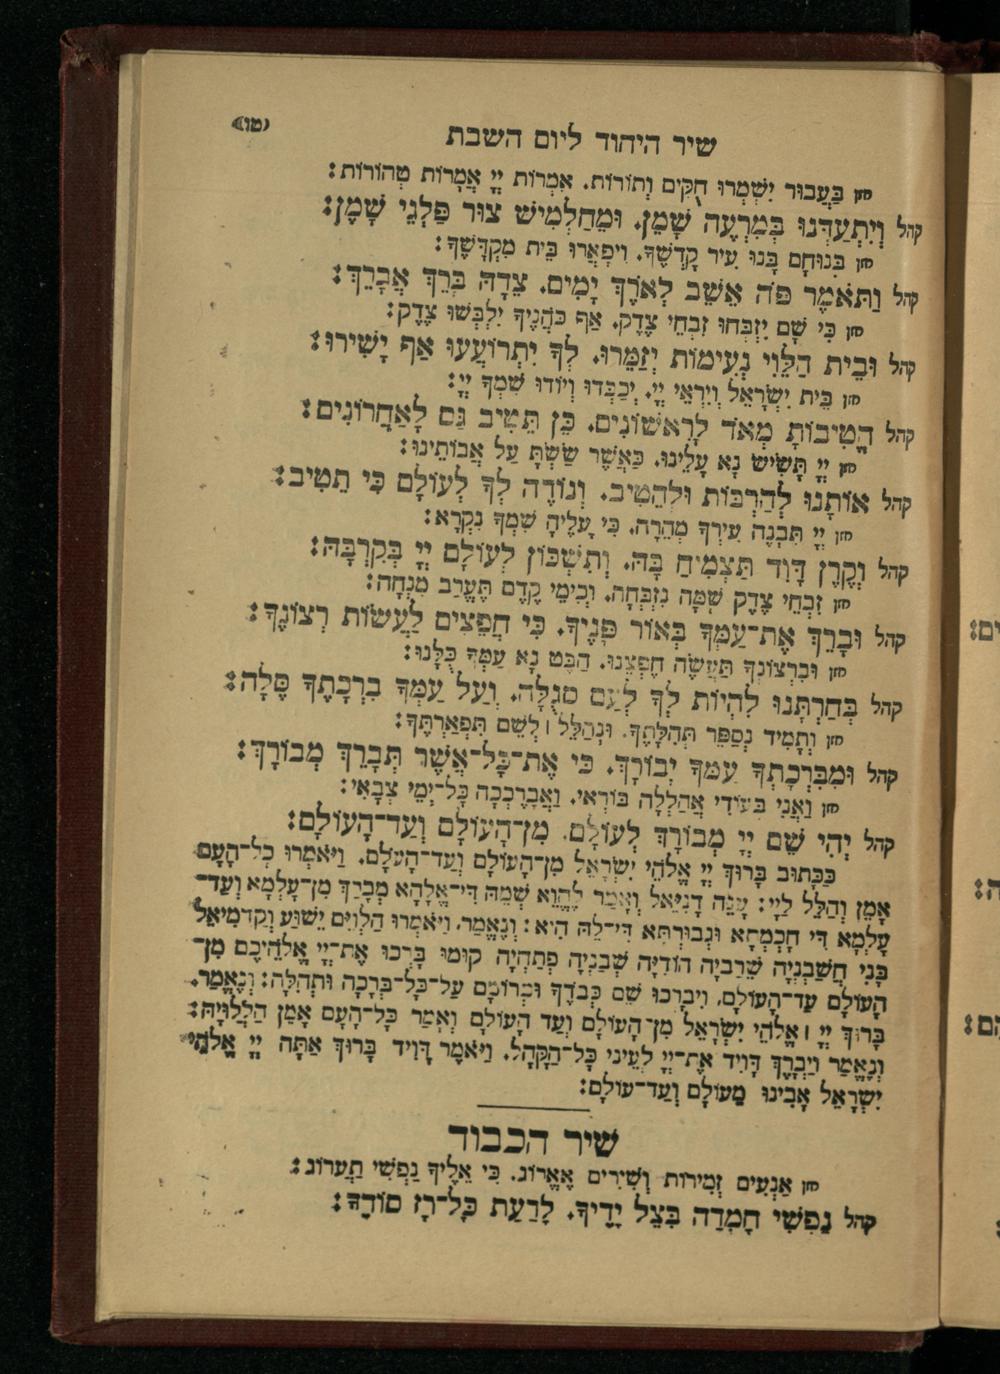 שיר היחוד ליום השבת (טו)
חזן בַּעֲבוּר יִשְׁמְרוּ חֻקִּים וְתוֹרוֹת. אִמְרוֹת יְיָ אֲמָרוֹת טְהוֹרוֹת:
קהל וְיִתְעַדְּנוּ בְּמִרְעֶה שָׁמֵן. וּמֵחַלְמִישׁ צוּר פַּלְגֵי שָׁמֶן:
חזן בְּנוּחָם בָּנוּ עִיר קָדְשֶׁךָ. וִיפָאֲרוּ בֵּית מִקְדָּשֶׁךָ:
קהל וַתֹּאמֶר פֹּה אֵשֵׁב לְאֹרֶךְ יָמִים. צֵדָהּ בָּרֵךְ אֲבָרֵךְ:
חזן כִּי שָׁם יִזְבְּחוּ זִבְחֵי צֶדֶק. אַף כֹּהֲנֶיךָ יִלְבְּשׁוּ צֶדֶק:
קהל וּבֵית הַלֵּוִי נְעִימוֹת יְזַמֵּרוּ. לְךָ יִתְרוֹעֲעוּ אַף יָשִׁירוּ:
חזן בֵּית יִשְׂרָאֵל וְיִרְאֵי יְיָ. יְכַבְּדוּ וְיוֹדוּ שִׁמְךָ יְיָ:
קהל הֲטִיבוֹתָ מְאֹד לָרִאשׁוֹנִים. כֵּן תֵּטִיב גַּם לָאַחֲרוֹנִים:
חזן יְיָ תָּשִׂישׂ נָא עָלֵינוּ. כַּאֲשֶׁר שַׂשְׂתָּ עַל אֲבוֹתֵינוּ:
קהל אוֹתָנוּ לְהַרְבּוֹת וּלְהֵטִיב. וְנוֹדֶה לְךָ לְעוֹלָם כִּי תֵטִיב:
חזן יְיָ תִּבְנֶה עִירְךָ מְהֵרָה. כִּי עָלֶיהָ שִׁמְךָ נִקְרָא:
קהל וְקֶרֶן דָּוִד תַּצְמִיחַ בָּהּ. וְתִשְׁכּוֹן לְעוֹלָם יְיָ בְּקִרְבָּהּ:
חזן זִבְחֵי צֶדֶק שָׁמָּה נִזְבְּחָה. וְכִימֵי קֶדֶם תֶּעֱרַב מִנְחָה:
קהל וּבָרֵךְ אֶת־עַמְּךָ בְּאוֹר פָּנֶיךָ. כִּי חֲפֵצִים לַעֲשׂוֹת רְצוֹנֶךָ:
חזן וּבִרְצוֹנְךָ תַּעֲשֶׂה חֶפְצֵנוּ. הַבֶּט נָא עַמְּךָ כֻלָּנוּ:
קהל בְּחַרְתָּנוּ לִהְיוֹת לְךָ לְעַם סְגֻלָּה. וְעַל עַמְּךָ בִרְכָתֶךָ סֶּלָה:
חזן וְתָמִיד נְסַפֵּר תְּהִלָּתֶךָ. וּנְהַלֵּל ׀ לְשֵׁם תִּפְאַרְתֶּךָ:
קהל וּמִבִּרְכָתְךָ עַמְּךָ יְבוֹרָךְ. כִּי אֶת־כָּל־אֲשֶׁר תְּבָרֵךְ מְבוֹרָךְ:
חזן וַאֲנִי בְּעוֹדִי אֲהַלְלָה בּוֹרְאִי. וַאֲבָרְכֶכָה כָּל־יְמֵי צְבָאִי:
קהל יְהִי שֵׁם יְיָ מְבוֹרָךְ לְעוֹלָם. מִן־הָעוֹלָם וְעַד־הָעוֹלָם:
כַּכָּתוּב בָּרוּךְ יְיָ אֱלֹהֵי יִשְׂרָאֵל מִן־הָעוֹלָם וְעַד־הָעֹלָם. וַיֹּאמְרוּ כָל־הָעָם
אָמֵן וְהַלֵּל לַיְיָ: עָנֵה דָנִיֵּאל וְאָמַר לֶהֱוֵא שְׁמֵהּ דִּי־אֱלָהָא מְבָרַךְ מִן־עָלְמָא וְעַד־
עָלְמָא דִּי חָכְמְתָא וּגְבוּרְתָּא דִּי־לֵהּ הִיא: וְנֶאֱמַר. וַיֹּאמְרוּ הַלְוִיִּם יֵשׁוּעַ וְקַדְמִיאֵל
בָּנִי חֲשַׁבְנְיָה שֵׁרֵבְיָה הוֹדִיָּה שְׁבַנְיָה פְתַחְיָה קוּמוּ בָּרְכוּ אֶת־יְיָ אֱלֹהֵיכֶם מִן־
הָעוֹלָם עַד־הָעוֹלָם. וִיבָרְכוּ שֵׁם כְּבוֹדֶךָ וּמְרוֹמָם עַל־כָּל־בְּרָכָה וּתְהִלָּה: וְנֶאֱמַר.
בָּרוּךְ יְיָ ׀ אֱלֹהֵי יִשְׂרָאֵל מִן־הָעוֹלָם וְעַד הָעוֹלָם וְאָמַר כָּל־הָעָם אָמֵן הַלְלוּיָהּ:
וְנֶאֱמַר וַיְבָרֶךְ דָּוִיד אֶת־יְיָ לְעֵינֵי כָּל־הַקָּהָל. וַיֹּאמֶר דָּוִיד בָּרוּךְ אַתָּה יְיָ אֱלֹהֵי
יִשְׂרָאֵל אָבִינוּ מֵעוֹלָם וְעַד־עוֹלָם:
שיר הכבוד
חזן אַנְעִים זְמִירוֹת וְשִׁירִים אֶאֱרוֹג. כִּי אֵלֶיךָ נַפְשִׁי תַעֲרוֹג:
קהל נַפְשִׁי חָמְדָה בְּצֵל יָדֶיךָ. לָדַעַת כָּל־רָז סוֹדֶךָ: